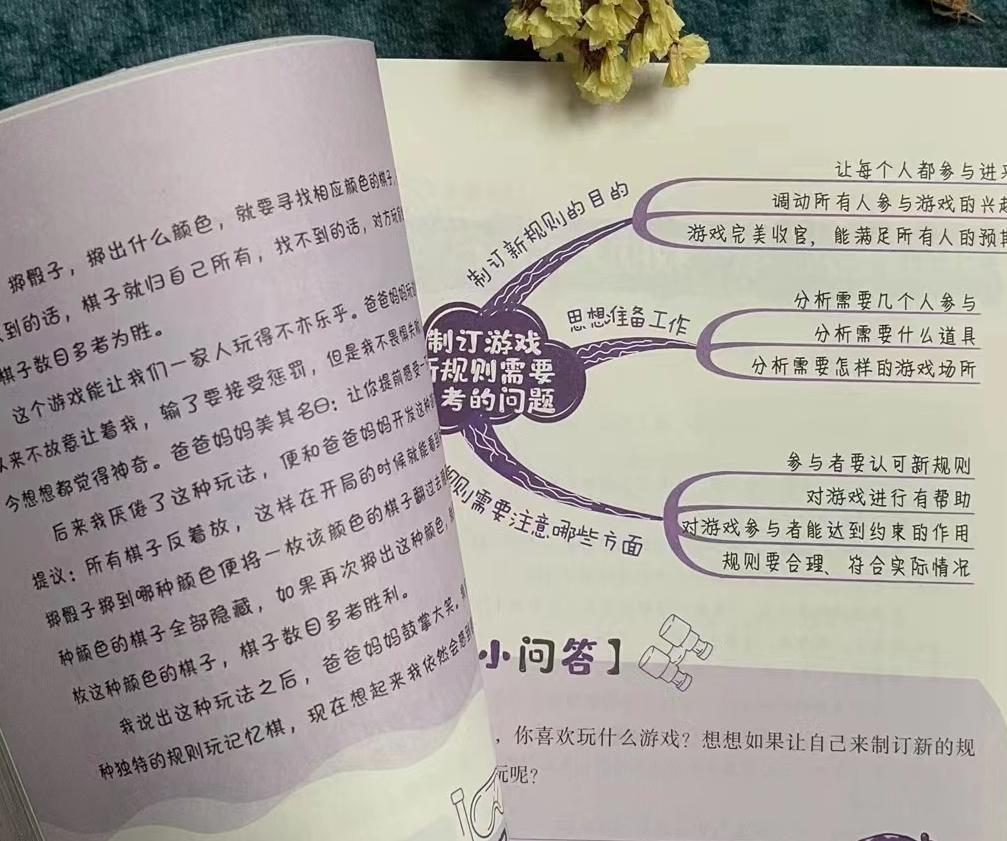 掷骰子，掷出什么颜色，就要寻找相应颜色的棋子，
到的话，棋子就归自己所有，找不到的话，对方玩
棋子数目多者为胜。
这个游戏能让我们一家人玩得不亦乐乎。爸爸妈妈玩
来不故意让着我，输了要接受惩罚，但是我不畏惧失
今想想都觉得神奇。爸爸妈妈美其名曰：让你提前感受
后来我厌倦了这种玩法，便和爸爸妈妈开发这种
提议：所有棋子反着放，这样在开局的时候就能看到
掷骰子掷到哪种颜色便将一枚该颜色的棋子翻过去
种颜色的棋子全部隐藏，如果再次掷出这种颜色，
枚这种颜色的棋子，棋子数目多者胜利。
我说出这种玩法之后，爸爸妈妈鼓掌大笑。
种独特的规则玩记忆棋，现在想起来我依然会感到
制订游戏
规则需要
考的问题
制订新规则的目的
让每个人都参与进来
调动所有人参与游戏的兴趣
游戏完美收官，能满足所有人的预期
思想准备工作
分析需要几个人参与
分析需要什么道具
分析需要怎样的游戏场所
则需要注意哪些方面
参与者要认可新规则
对游戏进行有帮助
对游戏参与者能达到约束的作用
规则要合理、符合实际情况
小问答】
，你喜欢玩什么游戏？想想如果让自己来制订新的规
玩呢？